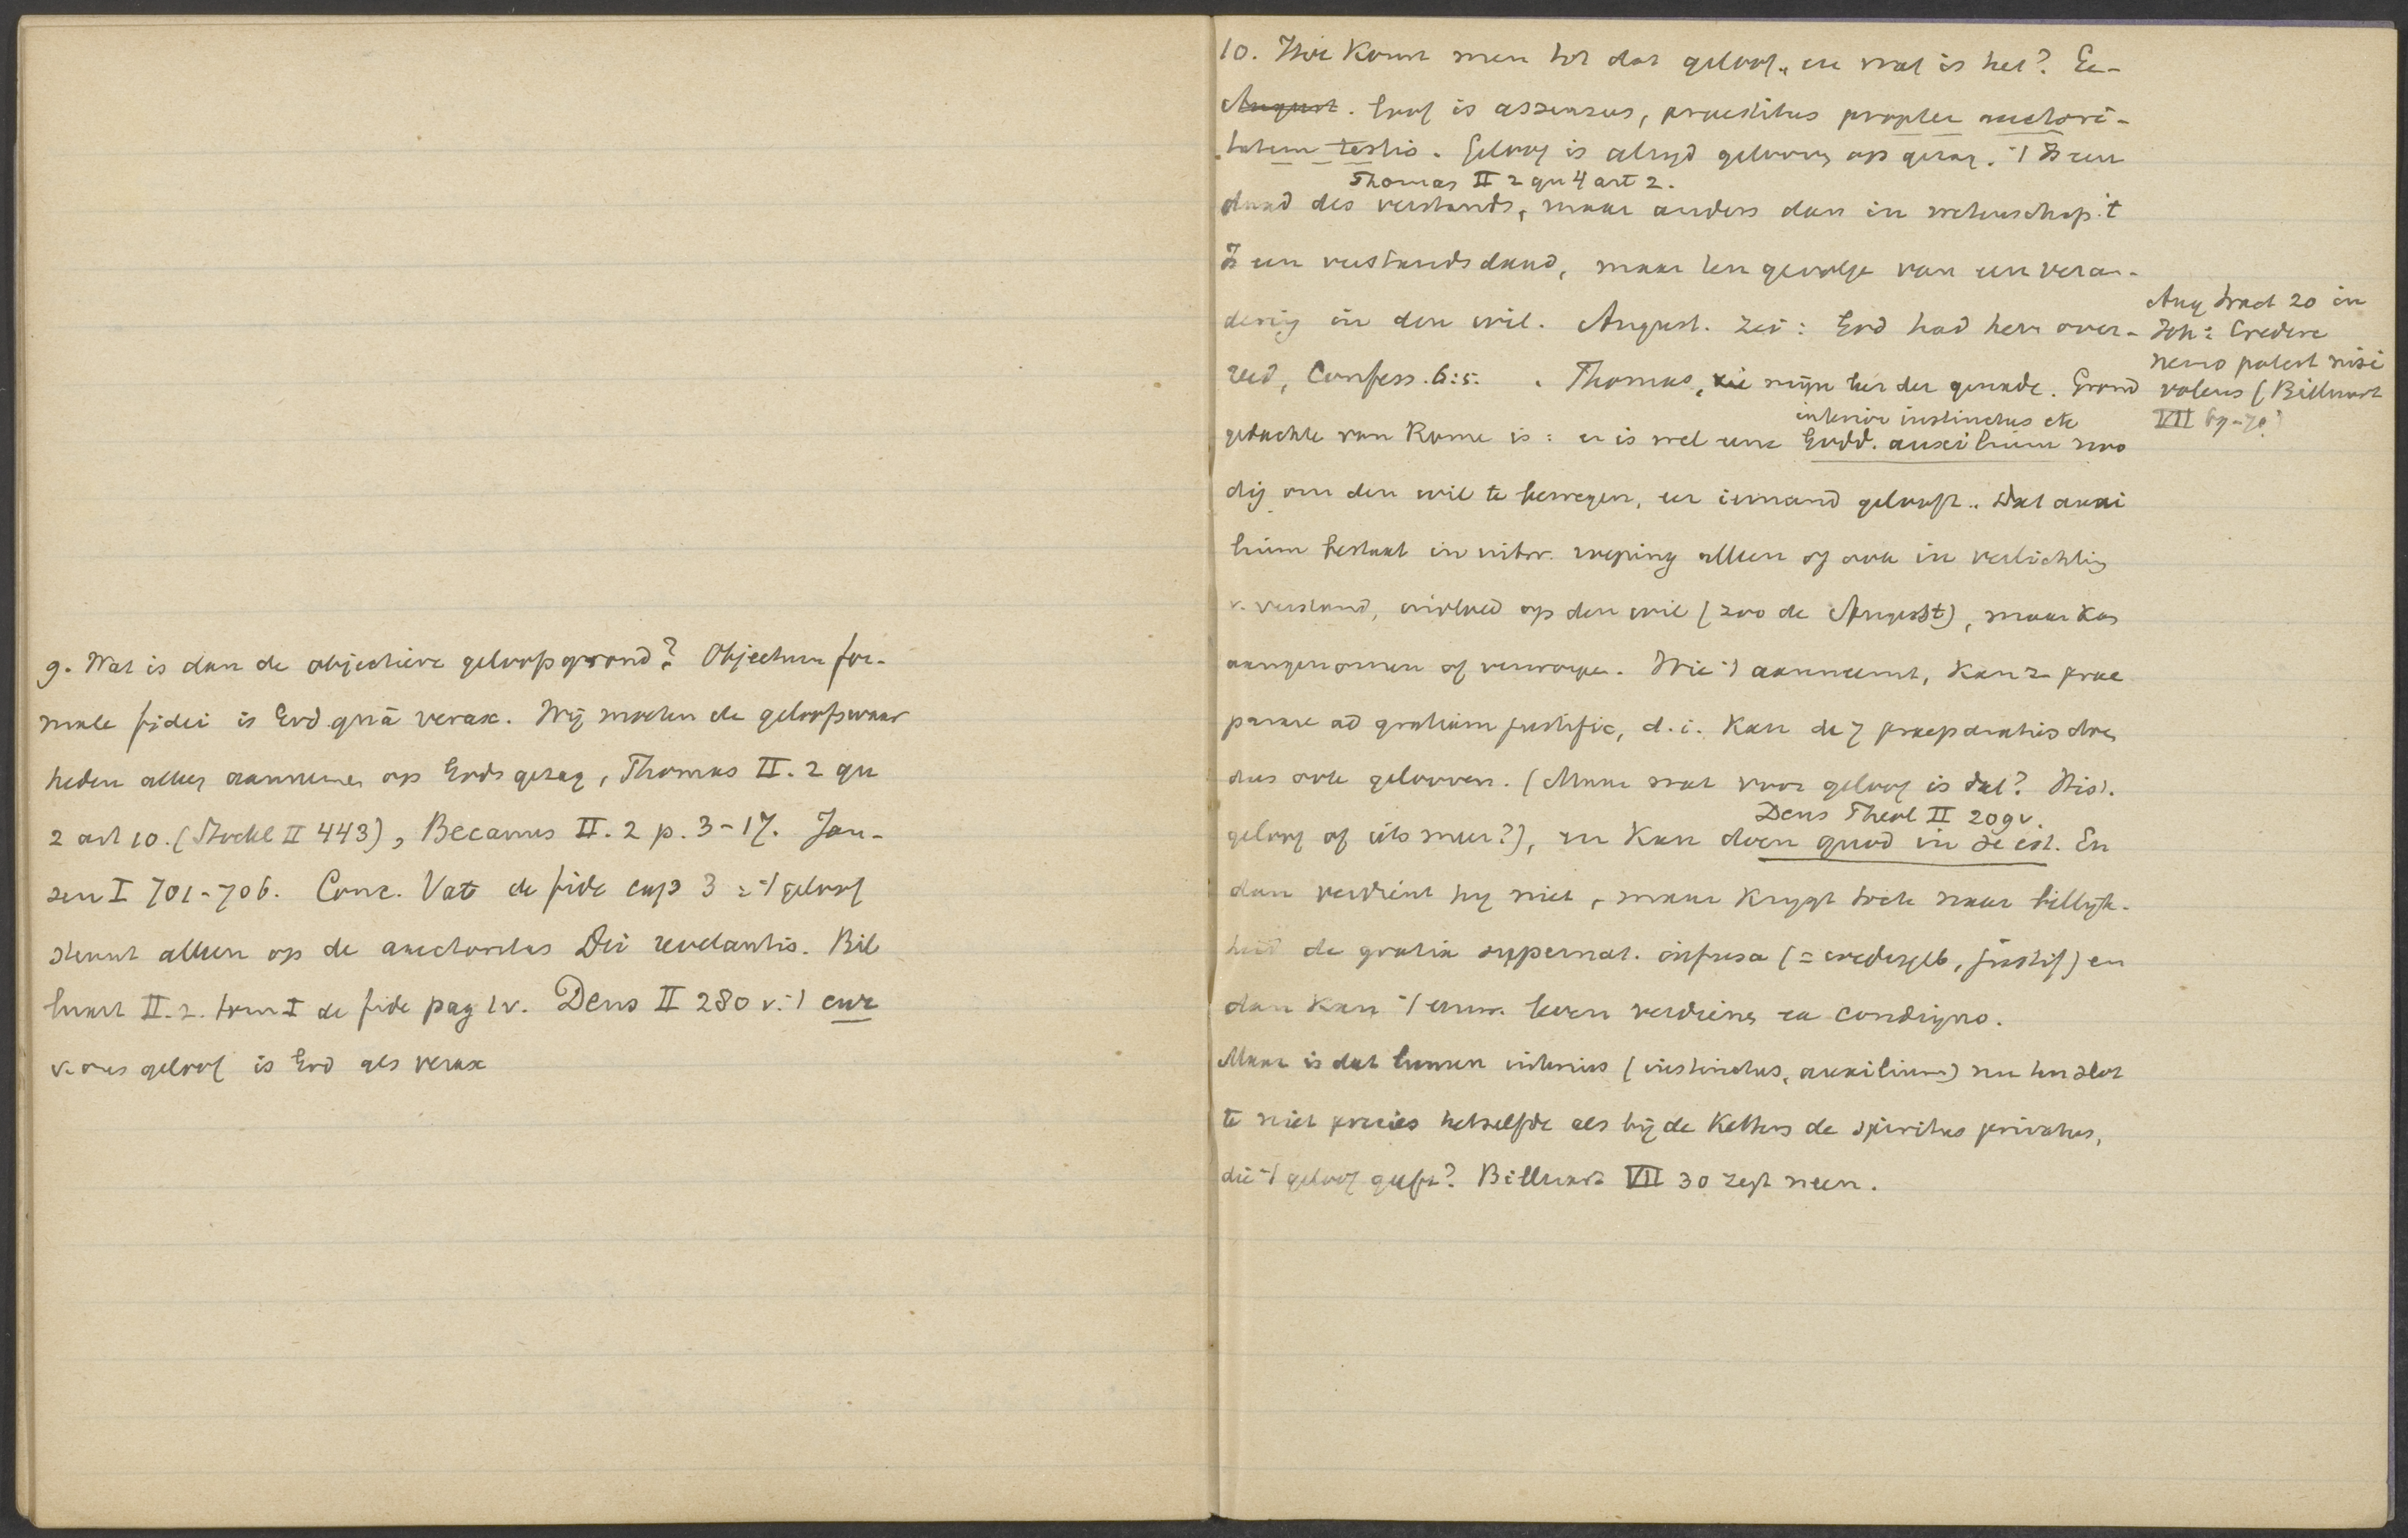 9. Wat is dan de objectieve geloofsgrond? Objectum for-
male fidei is God quâ verax. Wij moeten de geloofswaar
heden alleen aannemen op Gods gezag, Thomas II. 2 qu
2 art 10. (Stockl II 443), Becanus II. 2 p. 3-17. Jan-
sen I 701-706. Conc. Vat de fide cap 3 = 't geloof
steunt alleen op de auctoritas Dei revelantis. Bil
luart II. 2. tom I de fide pag 1v. Dens II 280 v. 't cur
v. ons geloof is God als verax
10. Hoe komt men tot dat geloof, en wat is het? Ge-
August. loof is assensus, praestitus propter auctori-
tatem testis. Geloof is altijd gelooven op gezag. 't Is een
Thomas II 2 qu 4 art 2.
daad des verstands, maar anders dan in wetenschap. 't
Is een verstandsdaad, maar ten gevolge van een veran-
dering in den wil. August. zei: God had hem over-
reed, Confess. 6:5. Thomas, zie mijn leer der genade. Grond
gedachte van Rome is: er is wel eene Godd. auxilium noo
interior instinctus etc
dig om den wil te bewegen, eer iemand gelooft. Dat auxi
lium bestaat in uitw. roeping alleen of ook in verlichting
v. verstand, invloed op den wil (zoo de August), maar kan
aangenomen of verworpen. Wie 't aanneemt, kan z. prae
parare ad gratiam justific, d. i. kan de 7 praeparaties doen
dus ook gelooven. (Maar wat voor geloof is dat? Hist.
geloof of iets meer?), en kan doen quod in se est. En
Dens Theol II 209v.
dan verdient hij niet, maar krijgt toch naar billijk-
heid de gratia supernat. infusa (= wedergeb, justif) en
dan kan 't eeuw. leven verdienen ex condigno.
Maar is dat lumen internus (instinctus, auxilium) nu ten slot
te niet precies hetzelfde als bij de Ketters de spiritus privatus,
die 't geloof geeft? Billuart VII 30 zegt neen.
Aug tract 20 in
Joh: Credere
nemo potest nisi
volens (Billuart
VII 69-70)